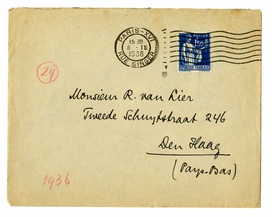 PARIS-XVI
15 30
8-II
1936
RUE SINGER
24
Monsieur R. van Lier
Tweede Schuytstraat 246
Den Haag
(Pays-Bas)
1936